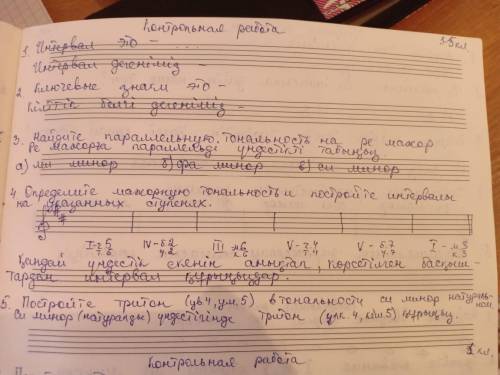 Контрольная работа
3-5 кл.
1. Интервал это - ...
Интервал дегеніміз -
2. Ключевые знаки это -
Кілттік белгі дегеніміз -
3. Найдите параллельную тональность на ре мажор
Ре мажорға параллельді үндестікті табыңыз.
а) ми минор б) фа минор в) си минор
4 Определите мажорную тональность и постройте интервалы
на указанных ступенях.
I - ч.5 IV - б.2 III м.6 V - ч.4 V - б.7 I - м.3
т.5 ү.2 к.6 т.4 ү.7 к.3
Қандай үндестік екенін анықтап, көрсетілген басқыш-
тардан интервал құрыңыздар.
5. Постройте тритон (ув4, ум.5) в тональности си минор натураль-
ном
Си минор (натуралды) үндестігінде тритон (үлк. 4, кіш 5) құрыңыз.
кл.
Контрольная работа